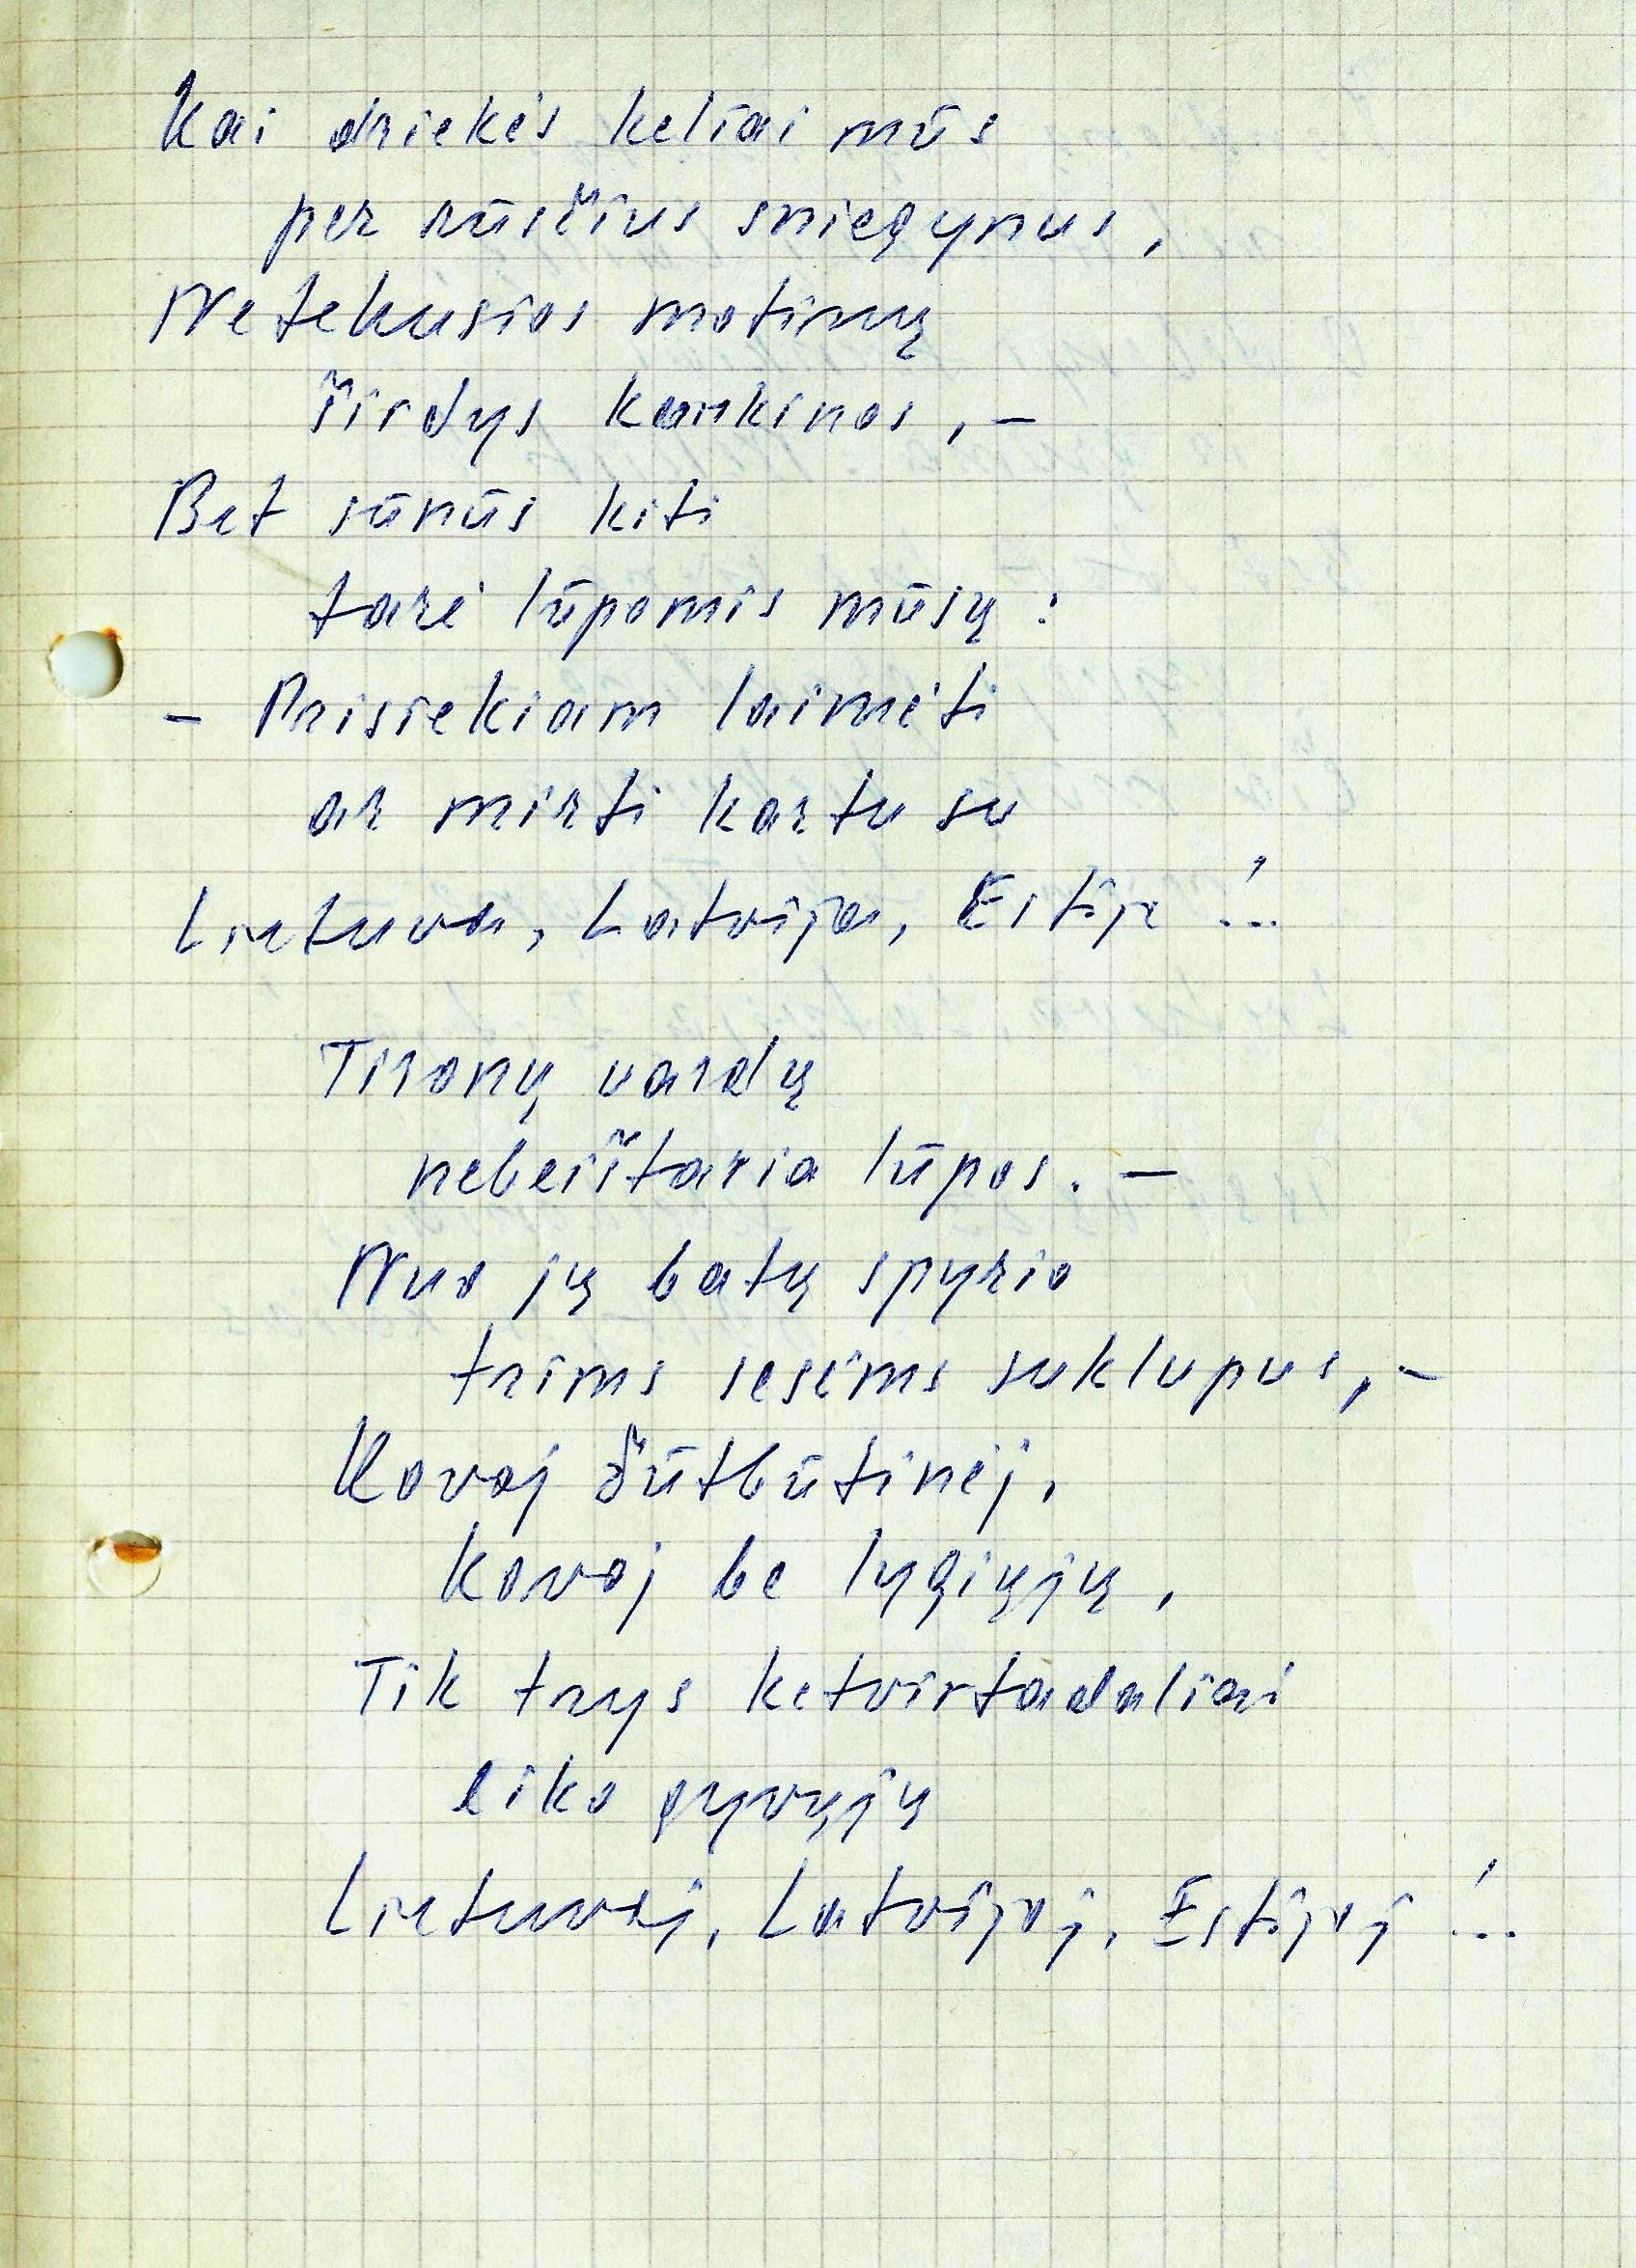 Kai driekės keliai mūs
per rūsčius sniegynus,
Netekusios motinų
širdys kankinos, –
Bet sūnūs kiti
tarė lūpomis mūsų:
– Prisiekiam laimėti
ar mirti kartu su
Lietuva, Latvija, Estija!..
Tironų vardų
nebeištaria lūpos. –
Nuo jų batų spyrio
trims sesėms suklupus, –
Kovoj žūtbūtinėj,
kovoj be lygiųjų,
Tik trys ketvirtadaliai
liko gyvųjų
Lietuvoj, Latvijoj, Estijoj!..